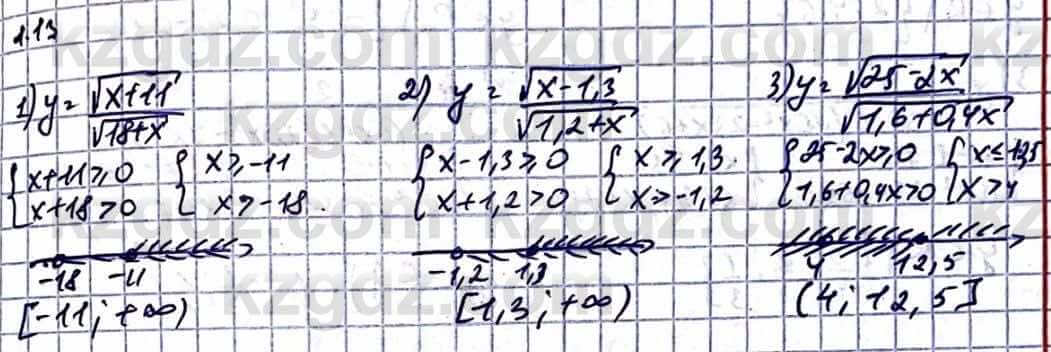 1.13
1) y = √(x+11) / √(18+x)
{ x+11 ≥ 0
x+18 > 0
{ x ≥ -11
x > -18.
-18 -11
[-11; +∞)
2) y = √(x-1,3) / √(1,2+x)
{ x-1,3 ≥ 0
x+1,2 > 0
{ x ≥ 1,3
x > -1,2
-1,2 1,3
[1,3; +∞)
3) y = √(25-2x) / √(1,6+0,4x)
{ 25-2x ≥ 0
1,6+0,4x > 0
{ x ≤ 12,5
x > 4
4 12,5
(4; 12,5]
kzgdz.com